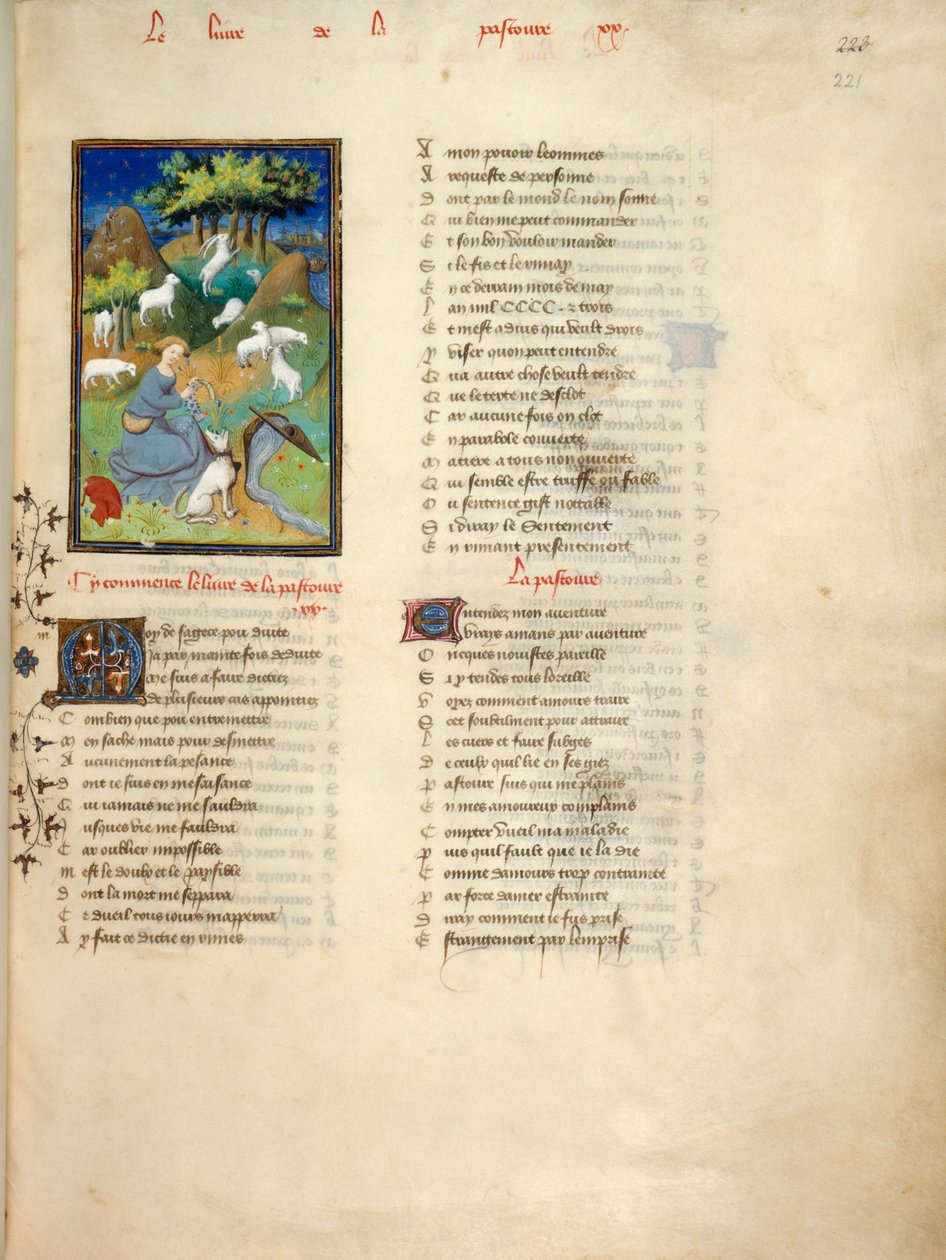 Le livre de la pastoure xx
223
221
Cy commence le livre de la pastoure
xx.
m
Moy de sagece pou duite
Ja pay mainte fois deduite
Me suis a faire dictiez
de plusieurs cas appointiez
Combien que pou entremettre
Men sache mais pour desmettre
Aucunement la pesance
Dont je suis en mesaisance
Qui jamais ne me fauldra
Jusques vie me fauldra
Car oublier impossible
mest le doulx et le paisible
dont la mort me seppara
Ce dueil tous jours mapperra
Ay fait ce dictie en rimes
A mon pouoir leonimes
A requeste de personne
Dont par le mond le nom sonne
Qui bien me peut commander
Et son bon vouloir mander
Si le fis et le rimay
En ce derrain mois de may
Lan mil CCCC. & trois
Et mest advis qui veult drois
y viser quon peut entendre
Qua autre chose veult tendre
Que le texte ne desclot
Car aucune fois on clot
En parabole couverte
matiere a tous non ouverte
Qui semble estre truffe ou fable
Ou sentence gist nottable
Si diray le Sentement
En rimant presentement
La pastoure
Entendez mon aventure
vrays amans par aventure
Oncques nouistes pareille
Si y tendes tous loreille
Voyez comment amours traire
Scet soubtilment pour attraire
Les cuers et faire subges
de ceulx quil lie en ses giez
pastoure suis qui me plains
En mes amoureux complains
Compter vueil ma maladie
puis quil fault que je la die
Comme damours trop contrainte
par force damer estrainte
Diray comment je fus prise
Estrangement par lemprise